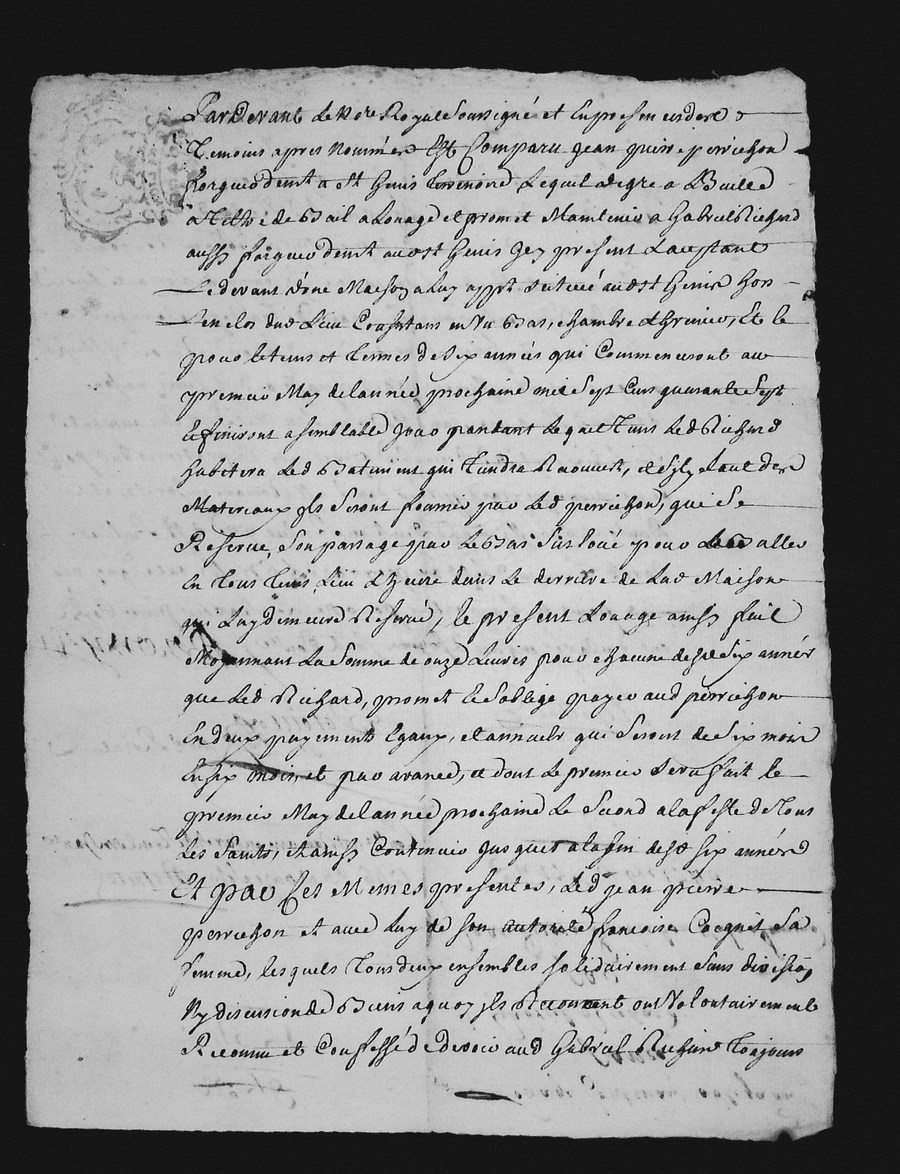 Pardevant Le No.re Royal Soussigné et En presence des
Temoins apres Nommés Est Comparu Jean pierre perrichon
forgeur demt a St Genis Terrenoire Lequel de gre a Baille
a Titre de Bail a Louage et promet Maintenir a Gabriel Richard
aussy forgeur demt aud St Genis Jcy present Lacceptant
Le devant d'une Maison a Luy appt Scituée aud St Genis hors
L'enclos dud Lieu Consistant en Un Bas, chambre & Grenier, Et Ce
pour le tems et termes de Six années qui Commenceront au
premier May de lannée prochaine mil Sept Cens quarante Sept
Et finiront a semblable Jour pandant Lequel Tems Led Richard
habitera Led Batiment qui Tiendra Recouvert, et Sy faut des
Materiaux Jls Seront fournis par Led perrichon, qui Se
Reserve Son passage par Le Bas Sus Loué pour aller
En Tous Tems, Lieu & heure dans Le derriere de Lad Maison
qui Luy demeure Reservé, Le present Louage ainsy fait
Moyennant La Somme de onze Livres pour chacune desd Six années
que Led Richard, promet et S'oblige payer aud perrichon
En deux payements Egaux, et annuels qui Seront de Six mois
En Six mois, et par avance, et dont Le premier Sera fait le
premier May de lannée prochaine Le Second a la feste de Tous
Les Saints, et ainsy Continuer Jusques a la fin desd six années
Et par Ces Memes presentes, Led Jean pierre
perrichon et avec Luy de Son autorité francoise Coignet Sa
femme, lesquels Tous deux ensembles Solidairement Sans division
Ny discussion de Biens a quoy Jls Renoncent ont Volontairement
Reconnu et Confessé de devoir aud Gabriel Richard Toujours